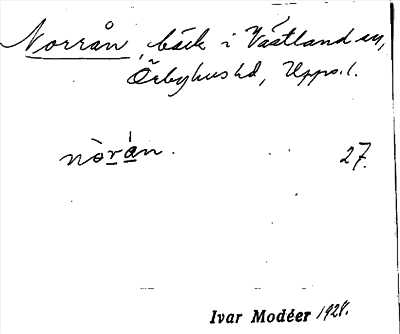 Norrån, bäck i Västland sn,
Örbyhus hd, Upps. l.
nòrán. 27.
Ivar Modéer 1928.